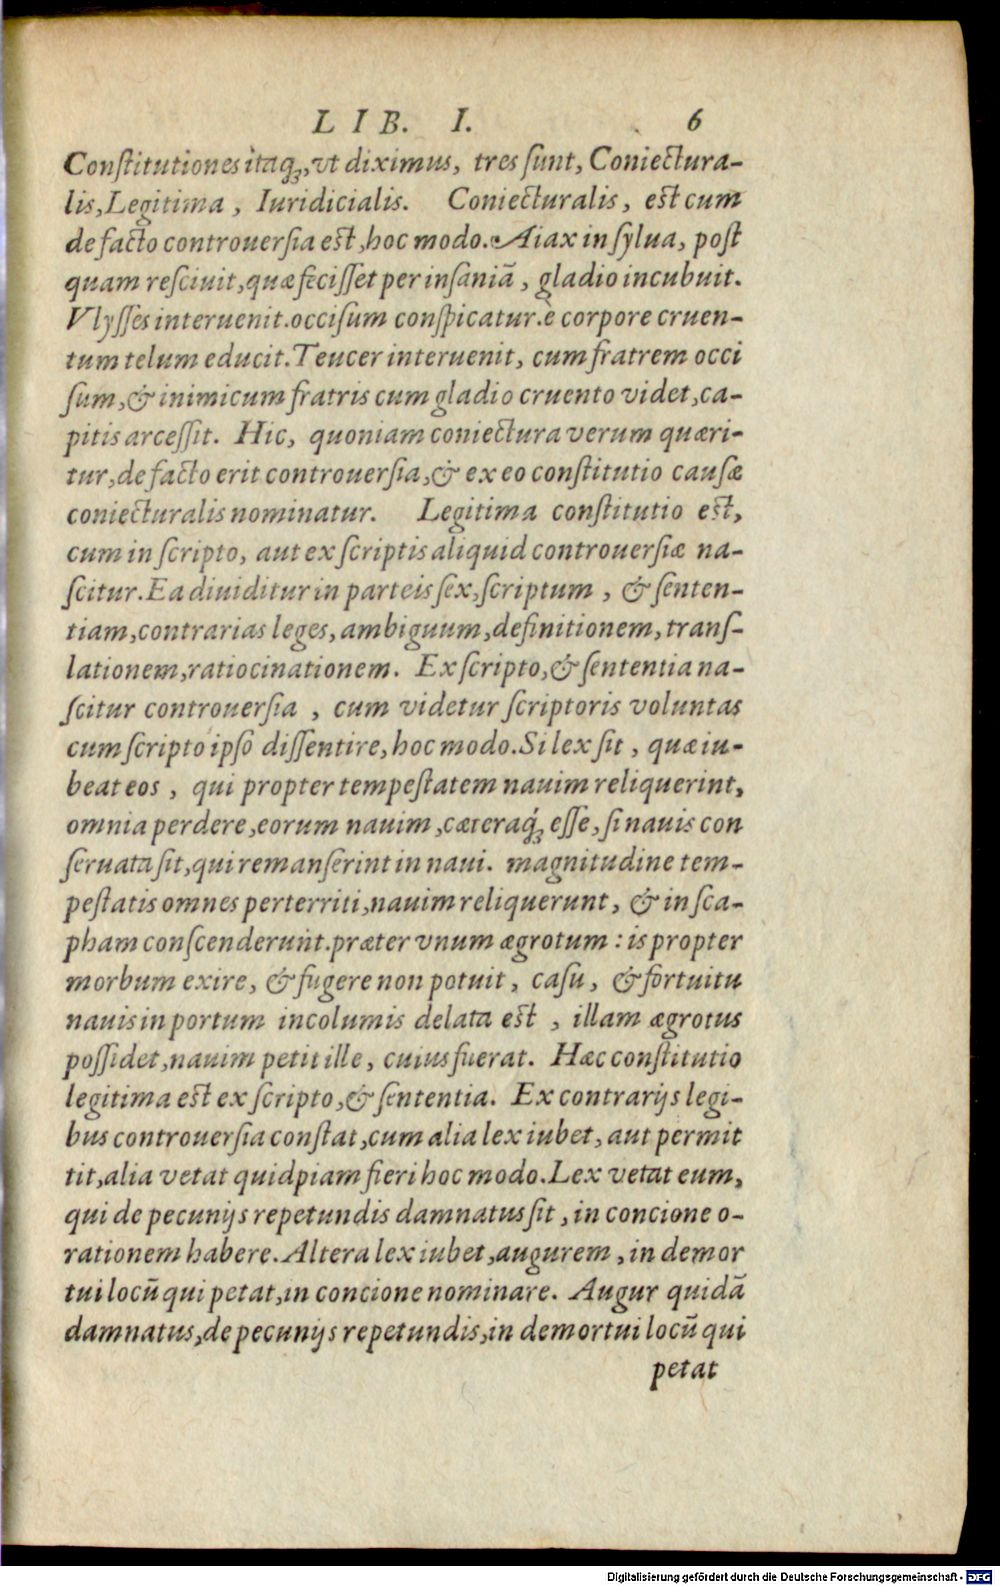 LIB. I. 6
Conſtitutiones itaq́;, vt diximus, tres ſunt, Coniectura-
lis, Legitima, Iuridicialis. Coniecturalis, eſt cum
de facto controuerſia eſt, hoc modo. Aiax in ſylua, poſt
quam reſciuit, quæ feciſſet per inſaniā, gladio incubuit.
Vlyſſes interuenit. occiſum conſpicatur. è corpore cruen-
tum telum educit. Teucer interuenit, cum fratrem occi
ſum, & inimicum fratris cum gladio cruento videt, ca-
pitis arceſſit. Hic, quoniam coniectura verum quæri-
tur, de facto erit controuerſia, & ex eo conſtitutio cauſæ
coniecturalis nominatur. Legitima conſtitutio eſt,
cum in ſcripto, aut ex ſcriptis aliquid controuerſiæ na-
ſcitur. Ea diuiditur in parteis ſex, ſcriptum, & ſenten-
tiam, contrarias leges, ambiguum, definitionem, tranſ-
lationem, ratiocinationem. Ex ſcripto, & ſententia na-
ſcitur controuerſia, cum videtur ſcriptoris voluntas
cum ſcripto ipſo diſſentire, hoc modo. Si lex ſit, quæ iu-
beat eos, qui propter tempeſtatem nauim reliquerint,
omnia perdere, eorum nauim, cæteraq́; eſſe, ſi nauis con
ſeruata ſit, qui remanſerint in naui. magnitudine tem-
peſtatis omnes perterriti, nauim reliquerunt, & in ſca-
pham conſcenderunt. præter vnum ægrotum: is propter
morbum exire, & fugere non potuit, caſu, & fortuitu
nauis in portum incolumis delata eſt, illam ægrotus
poſſidet, nauim petit ille, cuius fuerat. Hæc conſtitutio
legitima eſt ex ſcripto, & ſententia. Ex contrarijs legi-
bus controuerſia conſtat, cum alia lex iubet, aut permit
tit, alia vetat quidpiam fieri hoc modo. Lex vetat eum,
qui de pecunijs repetundis damnatus ſit, in concione o-
rationem habere. Altera lex iubet, augurem, in demor
tui locū qui petat, in concione nominare. Augur quidā
damnatus, de pecunijs repetundis, in demortui locū qui
petat
Digitalisierung gefördert durch die Deutsche Forschungsgemeinschaft - DFG